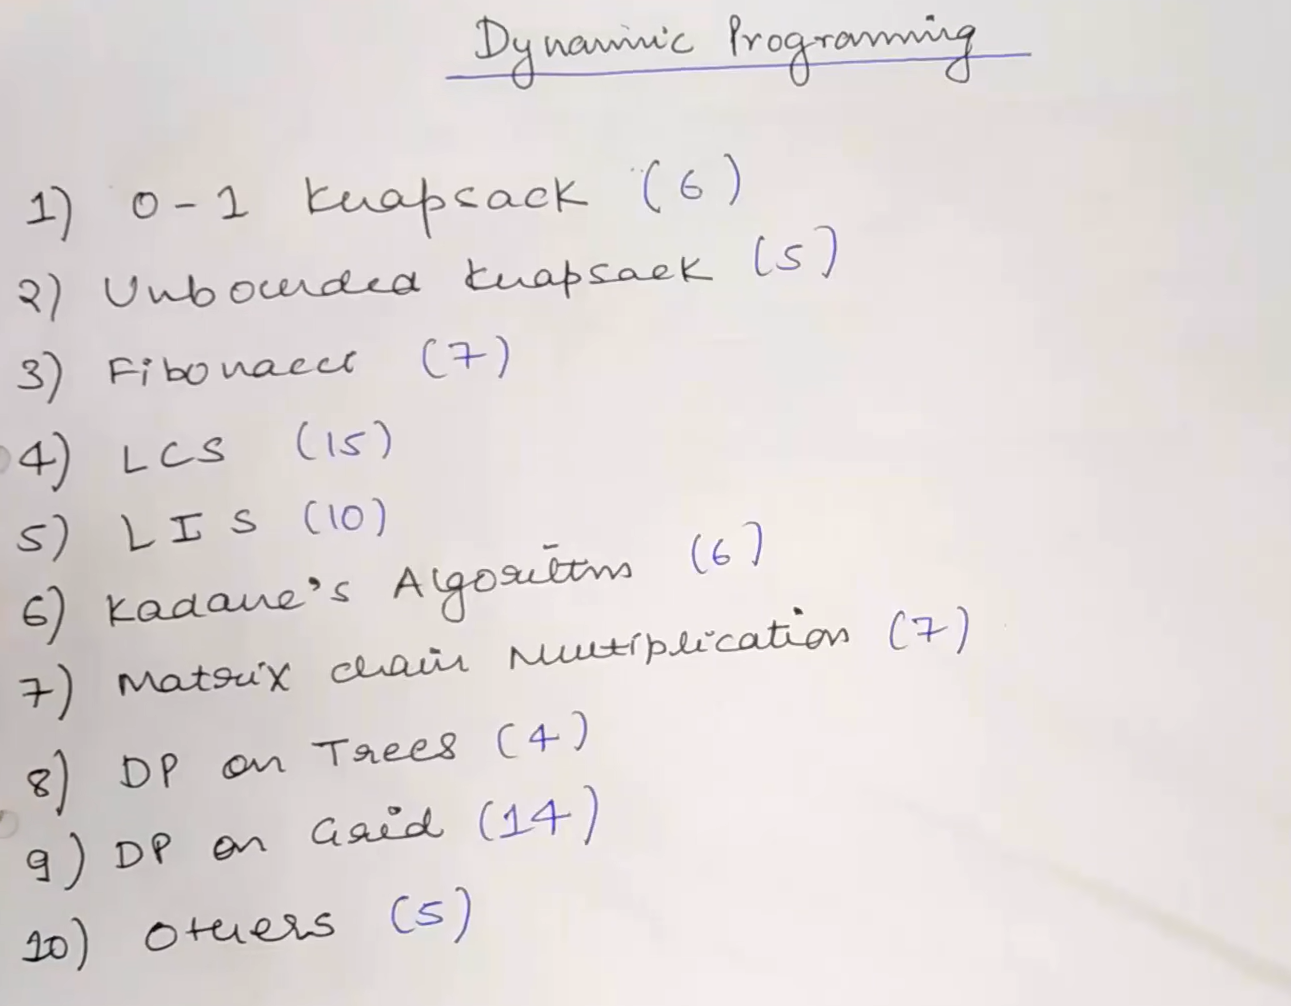 Dynamic Programming
1) 0-1 Knapsack (6)
2) Unbounded Knapsack (5)
3) Fibonacci (7)
4) LCS (15)
5) LIS (10)
6) Kadane's Algorithm (6)
7) Matrix chain Multiplication (7)
8) DP on Trees (4)
9) DP on Grid (14)
10) Others (5)